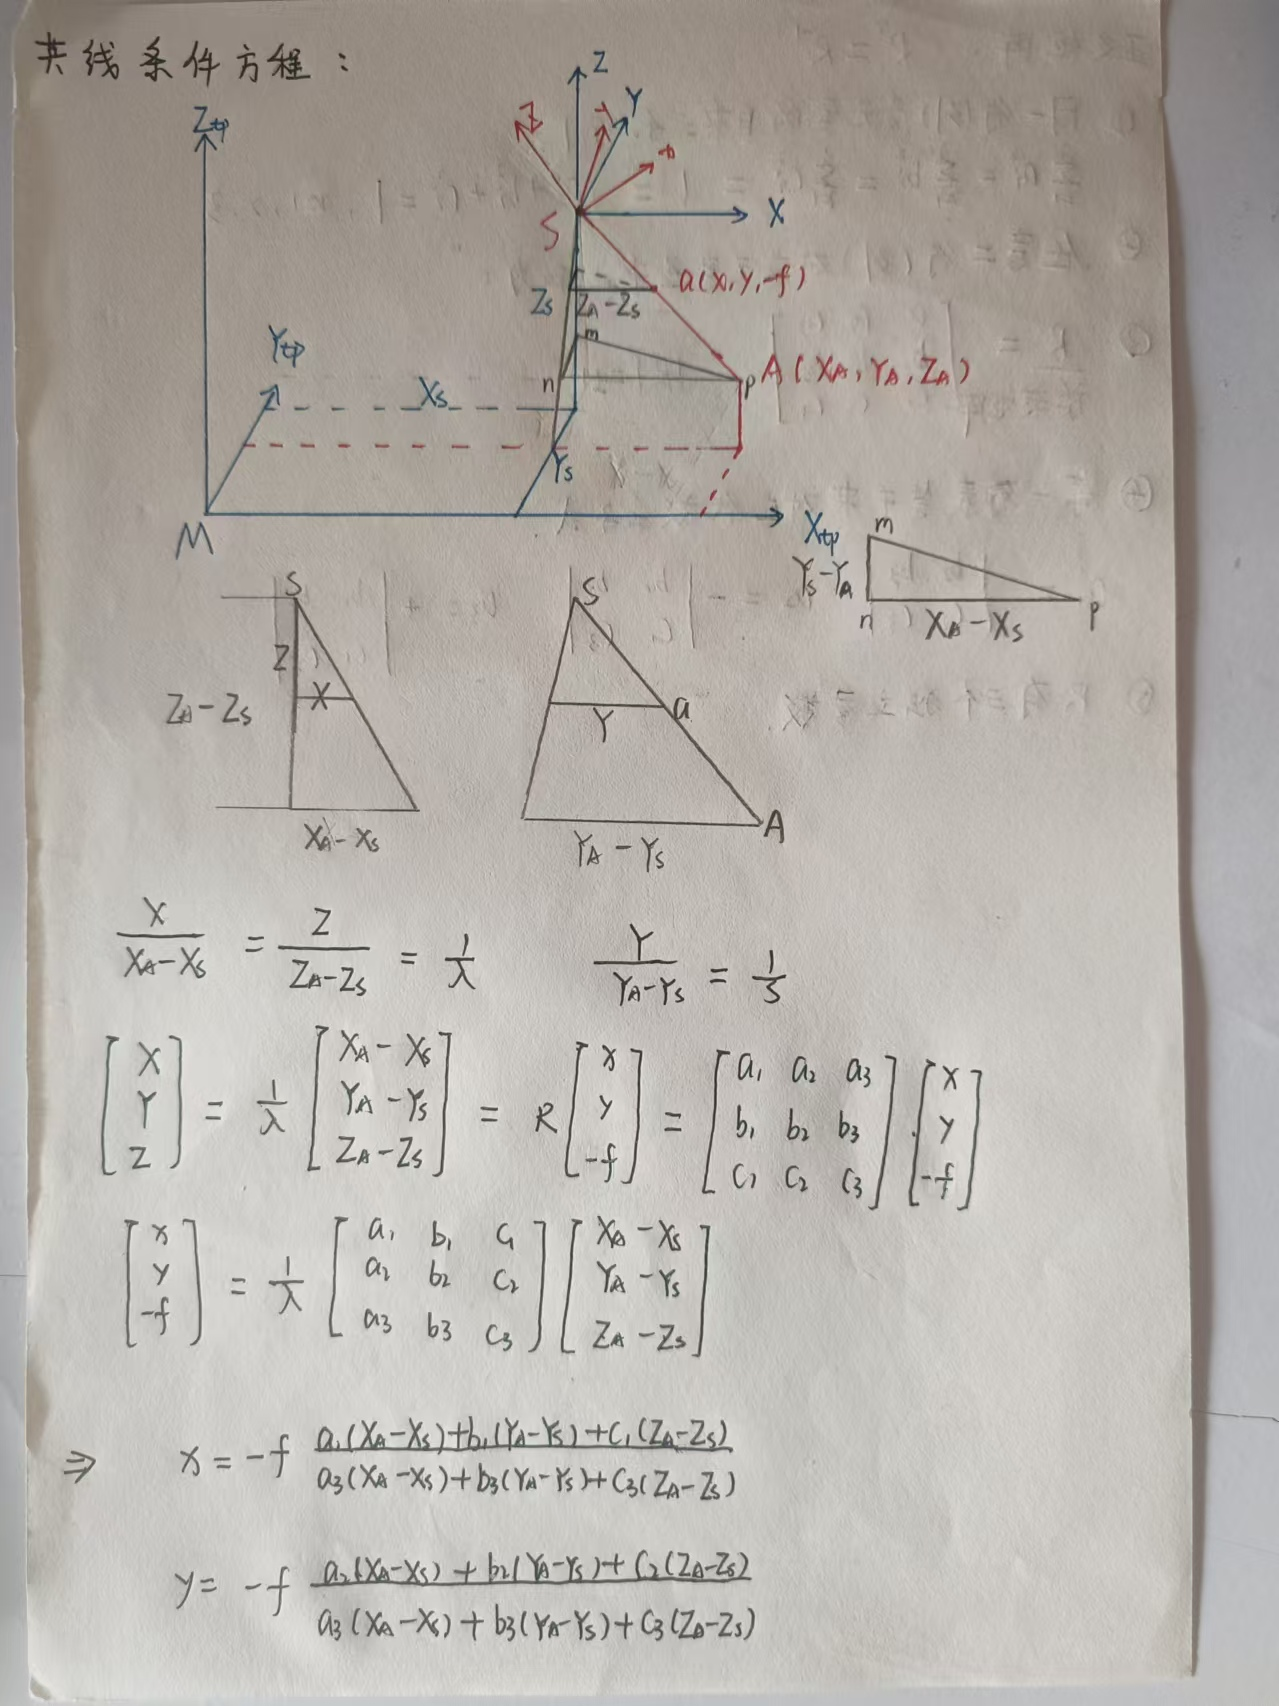 共线条件方程：
Z_tp
Z
Z
Y
Y
x
X
S
a(x,y,-f)
Z_S
Z_A-Z_S
m
Y_tp
n
P
A(X_A,Y_A,Z_A)
X_S
Y_S
M
X_tp
m
Y_S-Y_A
n
X_A-X_S
P
S
Z
X
Z_A-Z_S
X_A-X_S
S
Y
a
Y_A-Y_S
A
X/(X_A-X_S) = Z/(Z_A-Z_S) = 1/λ    Y/(Y_A-Y_S) = 1/S
[X Y Z] = 1/λ [X_A-X_S Y_A-Y_S Z_A-Z_S] = R [x y -f] = [a1 a2 a3 b1 b2 b3 c1 c2 c3]·[x y -f]
[x y -f] = 1/λ [a1 b1 c1 a2 b2 c2 a3 b3 c3] [X_A-X_S Y_A-Y_S Z_A-Z_S]
⇒ x = -f (a1(X_A-X_S)+b1(Y_A-Y_S)+c1(Z_A-Z_S))/(a3(X_A-X_S)+b3(Y_A-Y_S)+c3(Z_A-Z_S))
y = -f (a2(X_A-X_S)+b2(Y_A-Y_S)+c2(Z_A-Z_S))/(a3(X_A-X_S)+b3(Y_A-Y_S)+c3(Z_A-Z_S))